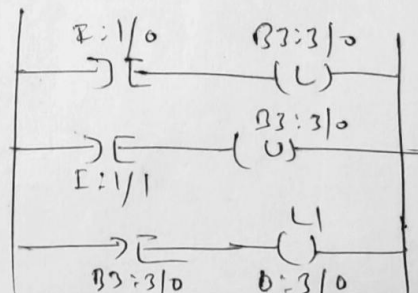 I:1/0 B3:3/0
(L)
B3:3/0
(U)
I:1/1
L1
B3:3/0 O:3/0